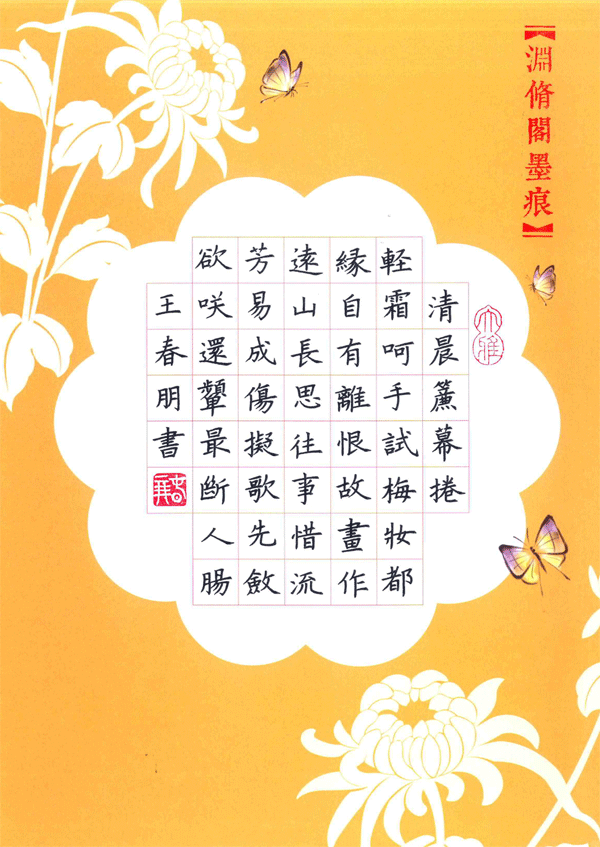 【淵脩閣墨痕】
大雅
清晨簾幕捲
軽霜呵手試梅妝都
縁自有離恨故畫作
逺山長思往事惜流
芳易成傷擬歌先斂
欲咲還顰最断人腸
王春朋書